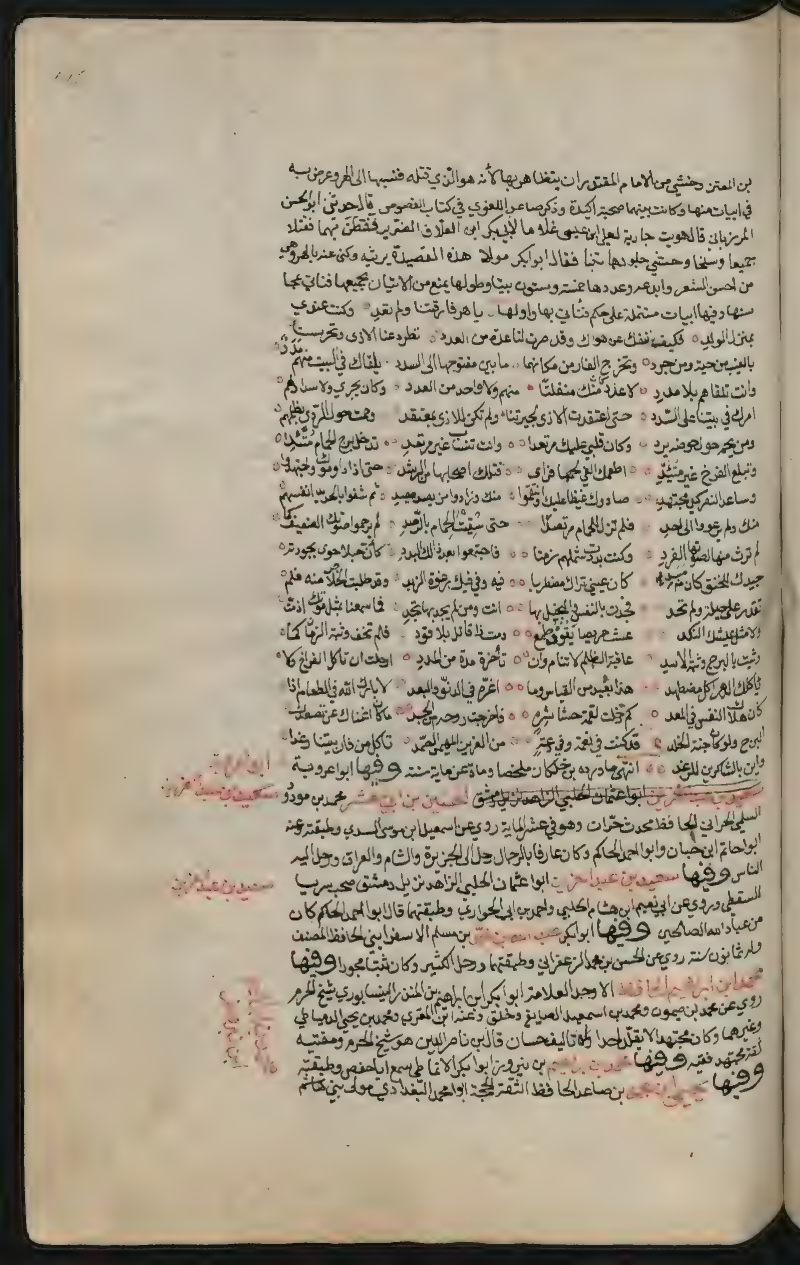 بن المعتز وخشي من الامام المقتدر ان يتظاهر بها لأنه هو الذي قتله فنسبها الى الهر وعرض به
في ابيات منها وكانت بينهما صحبة اكيدة وذكر صاعد اللغوي في كتاب الفصوص قال حدثني ابو الحسن
المرزباني قال هويت جارية لعلي ابن عيسى غلاما لأبي بكر ابن العلاف الضرير ففطن بهما فقتلا
جميعا وسلخا وحشي جلودهما تبنا فقال ابو بكر مولاه هذه القصيدة يرثيه وكنى عنه بالهر وهي
من احسن الشعر وابدعه وعددها خمسة وستون بيتا وطولها يمنع من الاتيان بجميعها فنأتي بمحا
سنها وفيها ابيات مشتملة على حكم فنأتي بها واولها يا هر فارقتنا ولم تعد وكنت عندي
بمنزل الولد فكيف ننفك عن هواك وقد صرت لنا عدة من العدد تطرد عنا الاذى وتحرسنا
بالغيب من حية ومن جرد وتخرج الفار من مكانها ما بين مفتوحها الى السدد يلقاك في البيت منهم مدد
وانت تلقاهم بلا مدد لا عدد كان منك منفلتا منهم ولا واحد من العدد وكان يجري ولا سداد لهم
امرك في بيتنا على السدد حتى اعتقدت الاذى لجيرتنا ولم تكن للاذى بمعتقد وحمت حول الردى بظلمهم
ومن يحم حول حوضه يرد وكان قلبي عليك مرتعدا وانت تنساب غير مرتعد تدخل برج الحمام متئدا
وتبلع الفرخ غير متئد اطعمك الغي لحمها فرأى قتلك اصحابها من الرشد حتى اذا داوموك واجتهدوا
وساعد النصر كيد مجتهد صادوك غيظا عليك وانتقموا منك وزادوا من يصد يصد ثم شفوا بالحديد انفسهم
منك ولم يرعووا الى احد فلم تزل للحمام مرتصدا حتى سقيت الحمام بالرصد لم يرحموا صوتك الضعيف كما
لم ترث منها لصوتها الغرد وكنت بددت شملهم زمنا فاجتمعوا بعد ذلك البدد كأن حبلا حوى بجودته
جيدك للخنق كان من مسد كان عيني تراك مضطربا فيه وفي فيك رغوة الزبد وقد طلبت الخلاص منه فلم
تقدر على حيلة ولم تجد فجدت بالنفس والبخيل بها انت ومن لم يجد بها يجد فما سمعنا بمثل موتك اذ مت
ولا مثل عيشك النكد عشت حريصا يقوده طمع ومت ذا قاتل بلا قود فلم تخف وثبة الزمان كما
وثبت بالبرج وثبة الاسد عاقبة الظلم لا تنام وان تأخرت مدة من المدد اردت ان تأكل الفراخ ولا
يأكلك الدهر اكل مضطهد هذا بعيد من القياس وما اعزه في الدنو والبعد لا بارك الله في الطعام اذا
كان هلاك النفس في المعد كم دخلت لقمة حشا شره فاخرجت روحه من الجسد ما كان اغناك عن تصعدك
البرج ولو كان جنة الخلد قد كنت في نعمة وفي دعة من العزيز المهيمن الصمد تأكل من فار بيتنا رغدا
واين بالشاكرين للرغد انتهى ما اورده بن خلكان ملخصا ومات عن ماية سنة وفيها ابو عروبة
الحسين بن ابي معشر محمد بن مودود
السلمي الحراني الحافظ محدث حران وهو في عشر الماية روى عن اسمعيل بن موسى السدي وطبقته وعنه
ابو حاتم ابن حبان وابو احمد الحاكم وكان عارفا بالرجال رحل الى الجزيرة والشام والعراق ورحل اليه
الناس وفيها سعيد بن عبد العزيز ابو اعثمان الحلبي الزاهد نزيل دمشق صحب سريا
السقطي وروى عن ابي نعيم ابن هشام الحلبي واحمد بن ابي الحواري وطبقتهما قال ابو احمد الحاكم كان
من عباد الله الصالحين وفيها ابو بكر عبد الله بن محمد بن مسلم الاسفرايني الحافظ المصنف
وله ثمانون سنة روى عن الحسن بن محمد الزعفراني وطبقته ورحل الكثير وكان ثبتا مجودا وفيها
محمد ابن ابراهيم الحافظ الاوحد العلامة ابو بكر ابن ابراهيم بن المنذر النيسابوري شيخ الحرم
روى عن محمد بن ميمون ومحمد بن اسمعيل الصايغ وخلق وعنه ابن المقري ومحمد بن يحيى الدمياطي
وغيرهما وكان مجتهدا لا يقلد احدا وله تاليف حسان قال بن ناصر الدين هو شيخ الحرم ومفتيه
ثقة مجتهد فقيه وفيها محمد بن ابراهيم بن نيروز ابو بكر الانماطي سمع ابا حفص وطبقته
وفيها يحيى بن محمد بن صاعد الحافظ الثقة الحجة ابو محمد البغدادي مولى بني هاشم
ابو عروبة
سعيد بن عبد العزيز
سعيد بن عبد العزيز